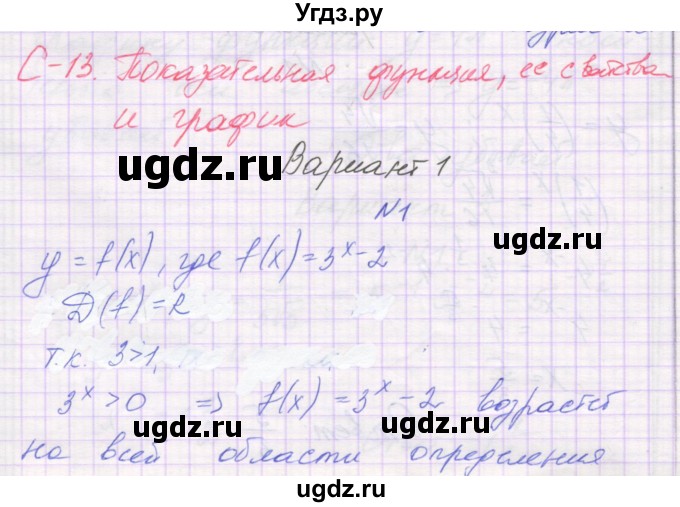 Угдз.ру
С-13. Показательная функция, ее свойства
и график
ugdz.ru
Вариант 1
ugdz.ru
N1
y = f(x), где f(x) = 3^x - 2
D(f) = R
т.к. 3>1,
3^x > 0 => f(x) = 3^x - 2 возрастет
ugdz.ru
ugdz.ru
на всей области определения
ugdz.ru